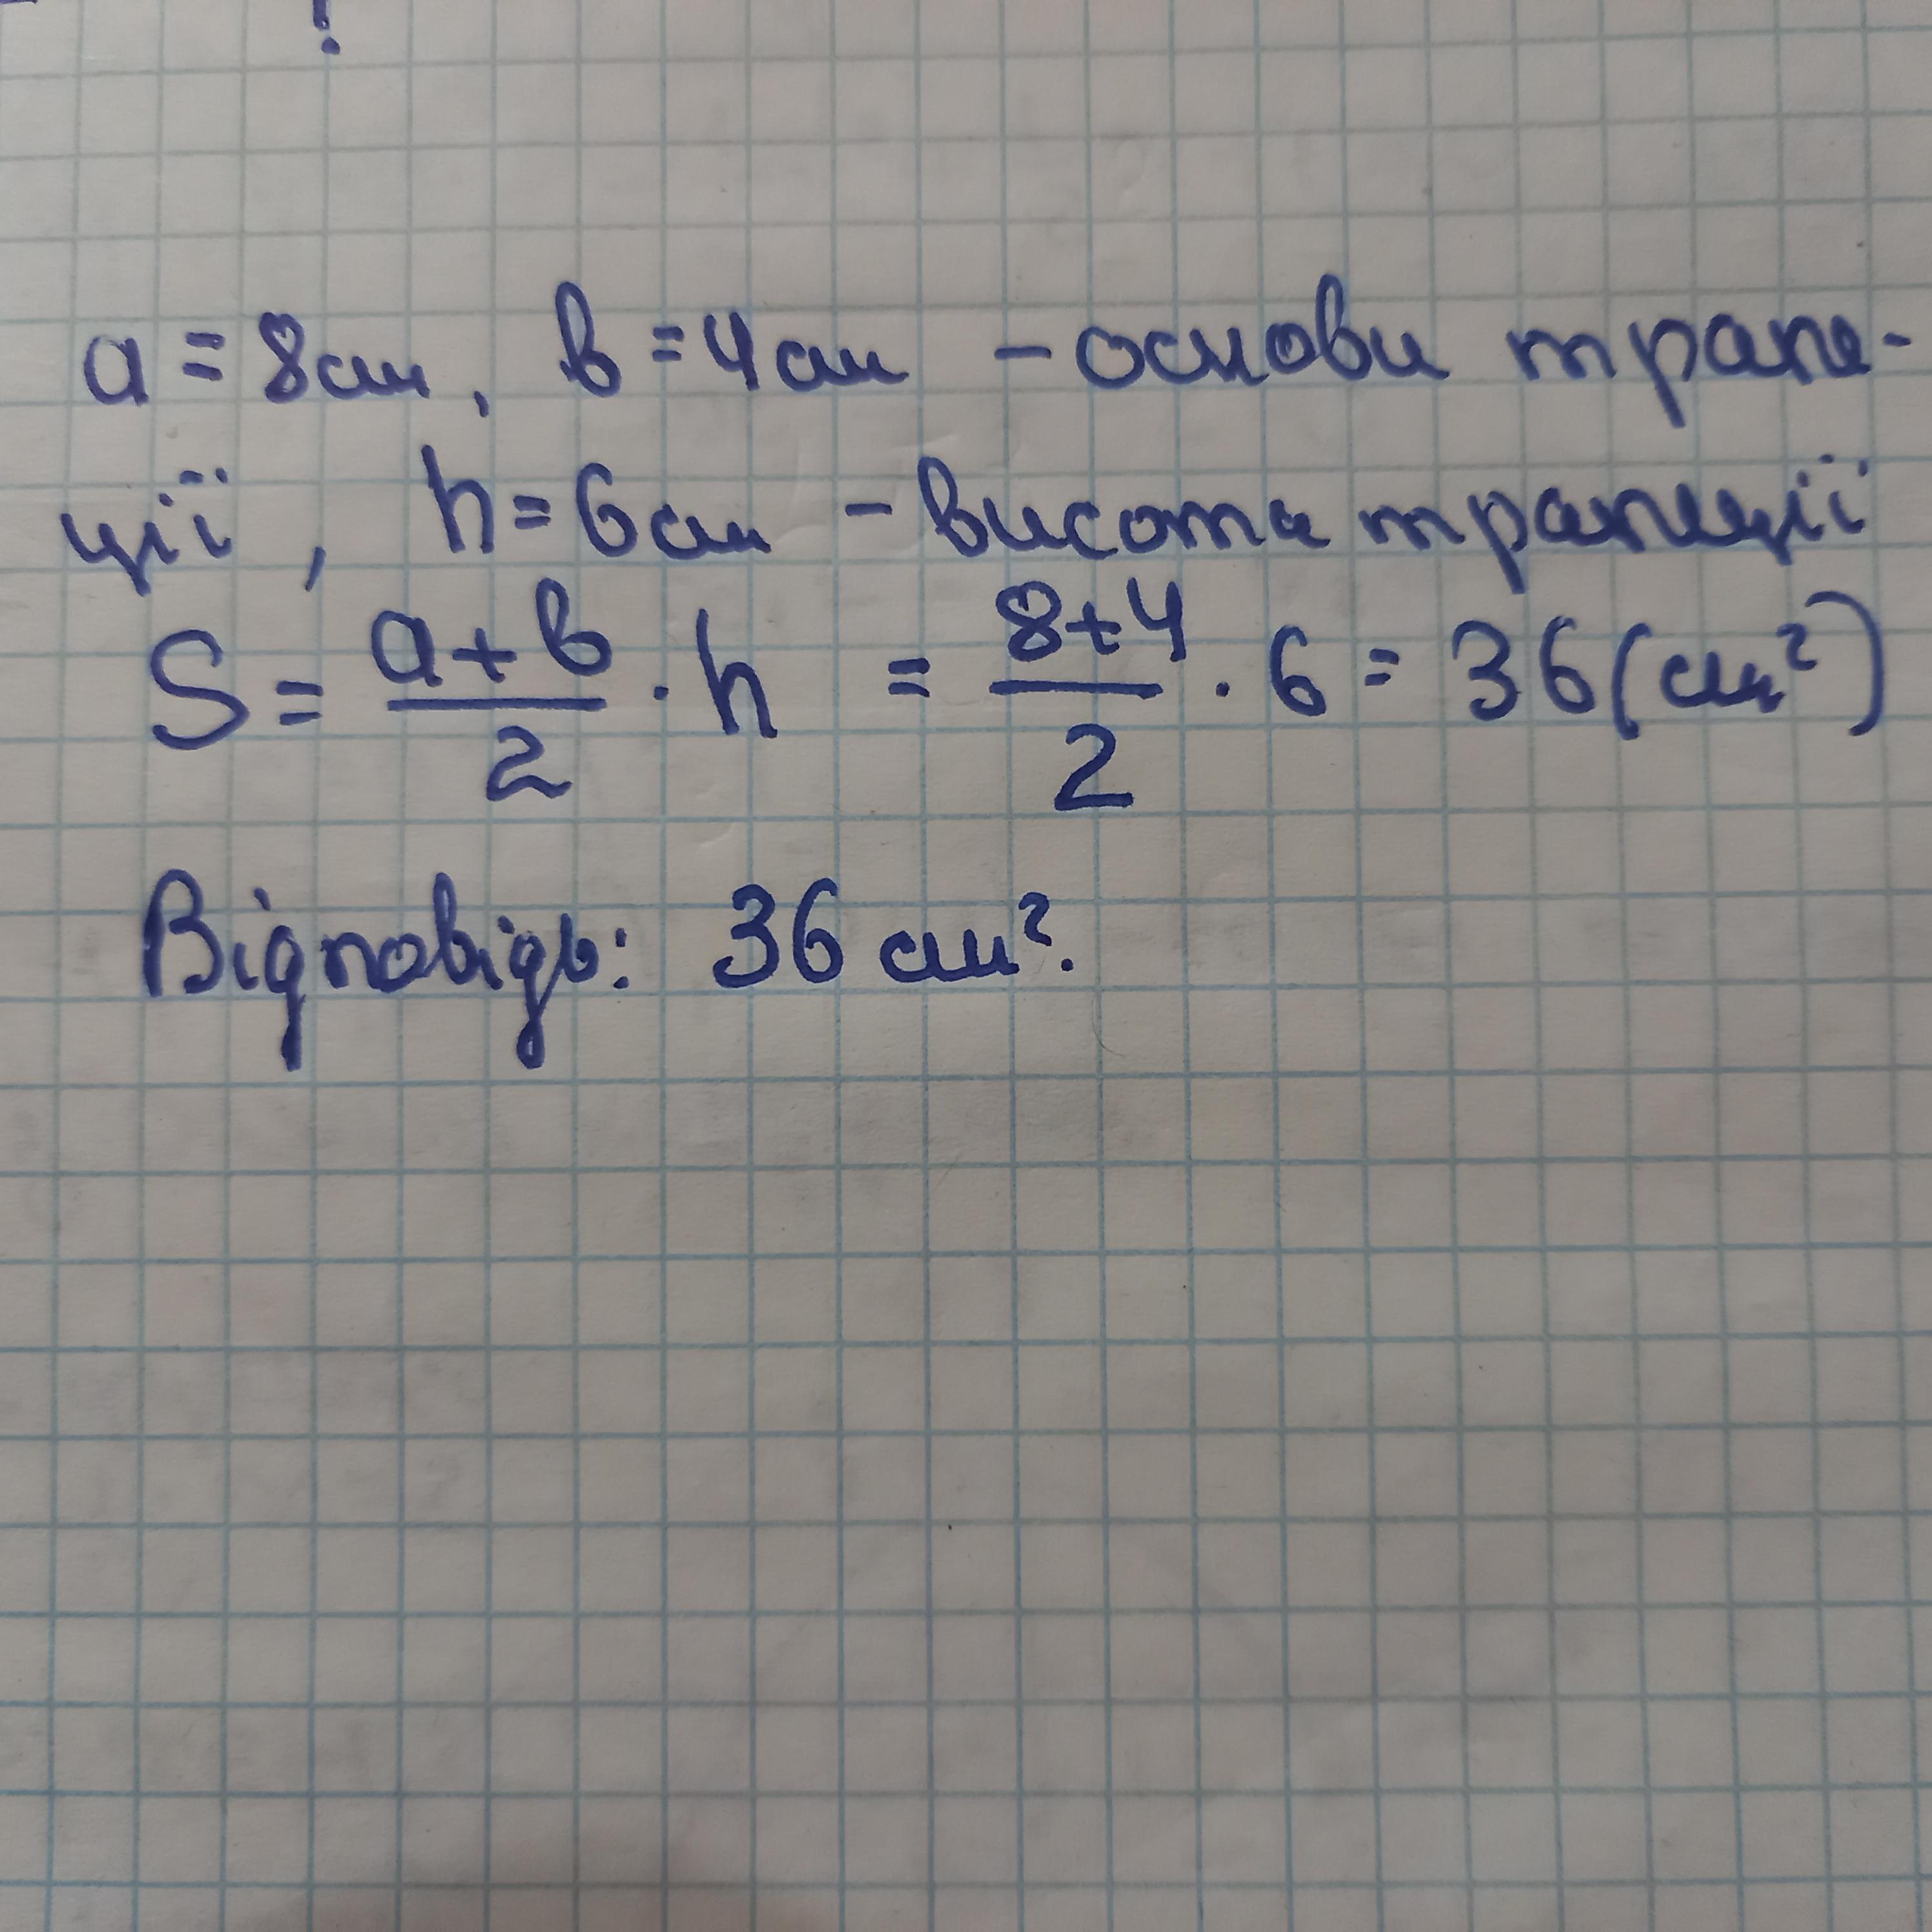 !
a = 8см, b = 4см – основи трапе-
ції, h = 6см – висота трапеції
S = \frac{a+b}{2} · h = \frac{8+4}{2} · 6 = 36 (см²)
Відповідь: 36 см².